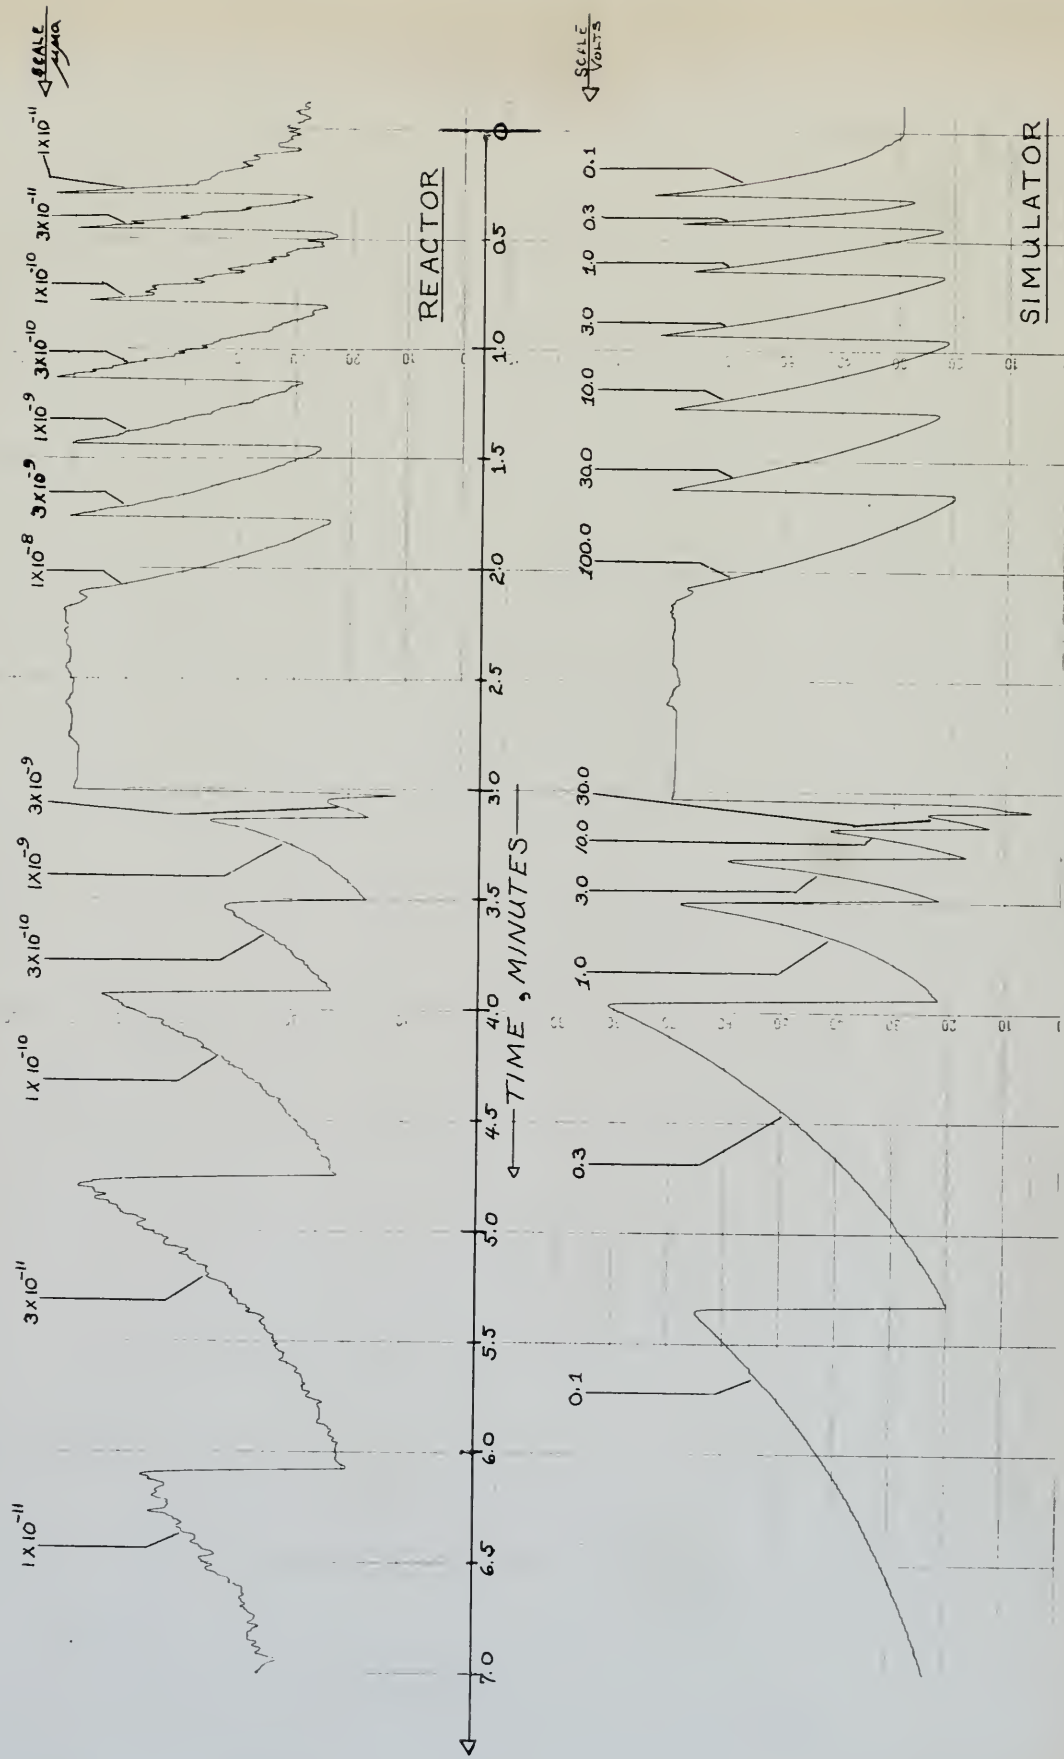 SCALE
1X10⁻¹¹
3X10⁻¹¹
1X10⁻¹⁰
3X10⁻¹⁰
1X10⁻⁹
3X10⁻⁹
1X10⁻⁸
3X10⁻⁹
1X10⁻⁹
3X10⁻¹⁰
1X10⁻¹⁰
3X10⁻¹¹
1X10⁻¹¹
REACTOR
0 0.5 1.0 1.5 2.0 2.5 3.0 3.5 4.0 4.5 5.0 5.5 6.0 6.5 7.0
TIME, MINUTES
SCALE
VOLTS
0.1
0.3
1.0
3.0
10.0
30.0
100.0
30.0
10.0
3.0
1.0
0.3
0.1
SIMULATOR